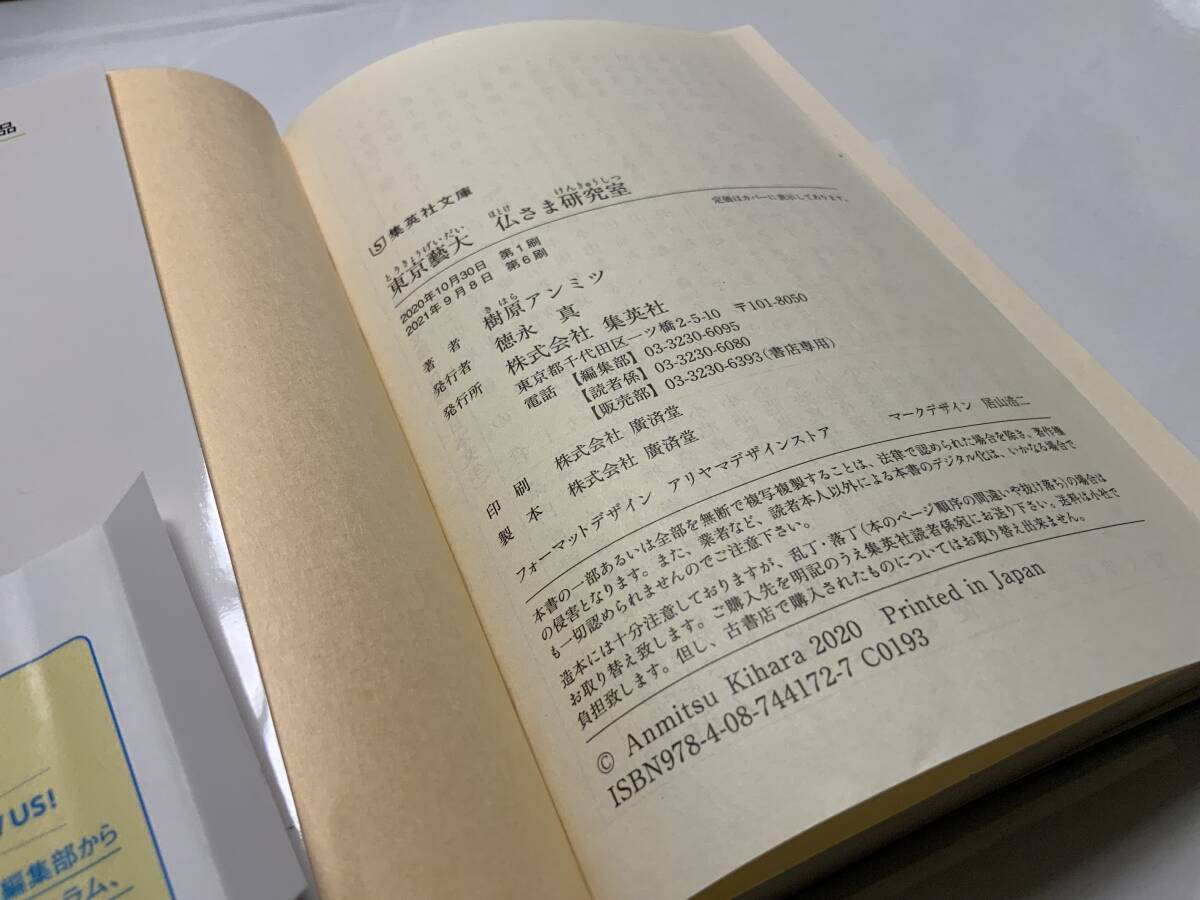 集英社文庫
とうきょうげいだい ほとけ けんきゅうしつ
東京藝大 仏さま研究室
2020年10月30日 第1刷
2021年9月8日 第6刷
定価はカバーに表示してあります。
きはら
著者 樹原アンミツ
発行者 徳永 真
発行所 株式会社 集英社
東京都千代田区一ツ橋2-5-10 〒101-8050
電話 【編集部】03-3230-6095
【読者係】03-3230-6080
【販売部】03-3230-6393(書店専用)
印刷 株式会社 廣済堂
製本 株式会社 廣済堂
フォーマットデザイン アリヤマデザインストア マークデザイン 居山浩二
本書の一部あるいは全部を無断で複写複製することは、法律で認められた場合を除き、著作権
の侵害となります。また、業者など、読者本人以外による本書のデジタル化は、いかなる場合で
も一切認められませんのでご注意下さい。
造本には十分注意しておりますが、乱丁・落丁(本のページ順序の間違いや抜け落ち)の場合は
お取り替え致します。ご購入先を明記のうえ集英社読者係宛にお送り下さい。送料は小社で
負担致します。但し、古書店で購入されたものについてはお取り替え出来ません。
© Anmitsu Kihara 2020 Printed in Japan
ISBN978-4-08-744172-7 C0193
品
US!
編集部から
ラム、